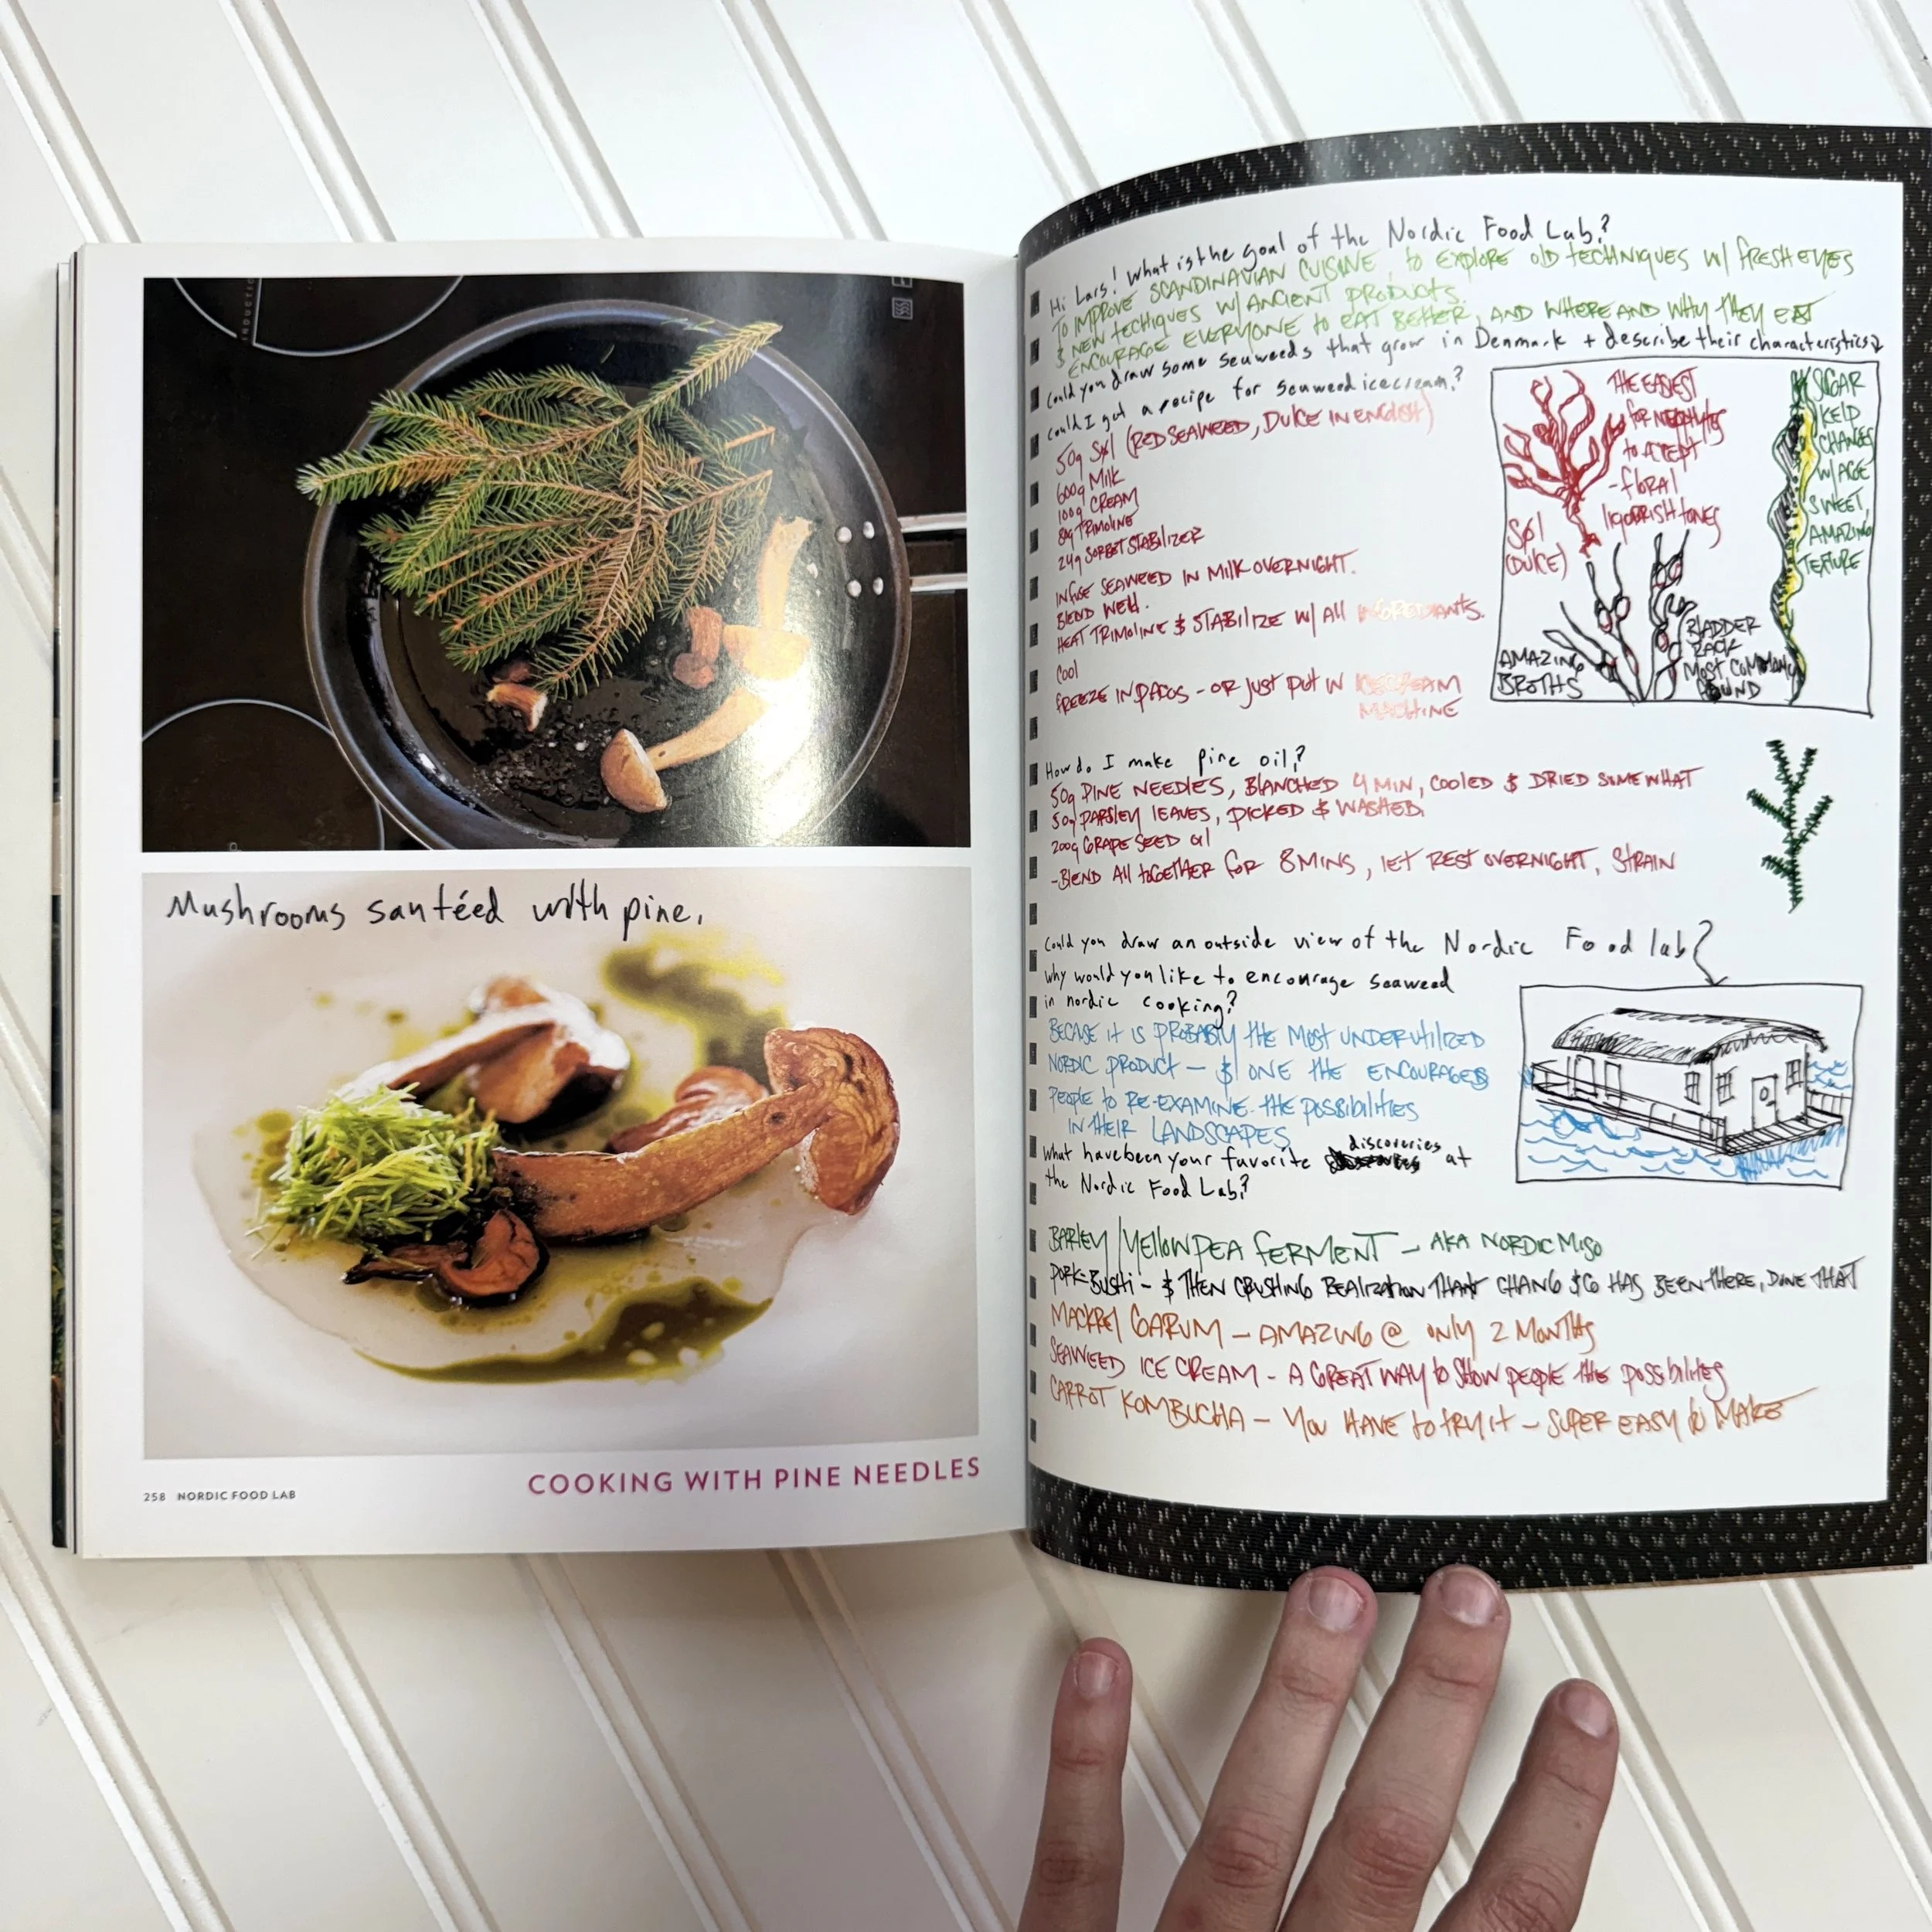 INDUCTIO
Mushrooms santéed with pine.
COOKING WITH PINE NEEDLES
258 NORDIC FOOD LAB
Hi Lars! What is the goal of the Nordic Food Lab?
TO IMPROVE SCANDINAVIAN CUISINE, to EXPLORE OLD TECHNIQUES W/ FRESH EYES
$ NEW TECHIQUES W/ ANCIENT PRODUCTS.
ENCOURAGE EVERYONE to EAT BETTER, AND WHERE AND WHY THEY EAT
Could you draw some seaweeds that grow in Denmark + describe their characteristics?
Could I get a recipe for seaweed icecream?
50g Søl (RED SEAWEED, DULCE IN ENGLISH)
600g Milk
100g CREAM
80g TRIMOLINE
24g SORBET STABILIZER
INFUSE SEAWEED IN MILK OVERNIGHT.
BLEND WELL.
HEAT TRIMOLINE $ STABILIZE W/ All INGREDIANTS.
COOl
FREEZE IN PACOS - OR JUST PUT IN ICECREAM
MACHINE
THE EASIEST
FOR NEOPHYTES
to ACCEPT
- FLORAL
LIQOORISH TONES
SØl
(DULCE)
SUGAR
KELP
CHANGES
W/ AGE
SWEET,
AMAZING
TEXTURE
AMAZING
BROTHS
BLADDER
RACK
MOST COMMONLY
FOUND
How do I make pine oil?
50g PINE NEEDLES, BLANCHED 4 MIN, COOLED $ DRIED SOMEWHAT
50g PARSLEY LEAVES, PICKED $ WASHED.
200g GRAPE SEED Oil
- BLEND All toGETHER FOR 8 MINS, LET REST OVERNIGHT, STRAIN
Could you draw an outside view of the Nordic Food lab?
Why would you like to encourage seaweed
in nordic cooking?
BECASE IT IS PROBABLY THE MOST UNDERUTILIZED
NORDIC PRODUCT - $ ONE THE ENCOURAGES
PEOPLE to RE-EXAMINE THE POSSIBILITIES
IN THEIR LANDSCAPES
What have been your favorite discoveries at
the Nordic Food Lab?
BARLEY/YELLOW PEA FERMENT - AKA NORDIC MISO
PORK-BUSHI - $ THEN CRUSHING REALIZATION THAT CHANG $ CO HAS BEEN THERE, DONE THAT
MACKREL GARUM - AMAZING @ ONLY 2 MONTHS
SEAWEED ICE CREAM - A GREAT WAY to SHOW PEOPLE THE POSSIBILITIES
CARROT KOMBUCHA - YOU HAVE to TRY IT - SUPER EASY to MAKE